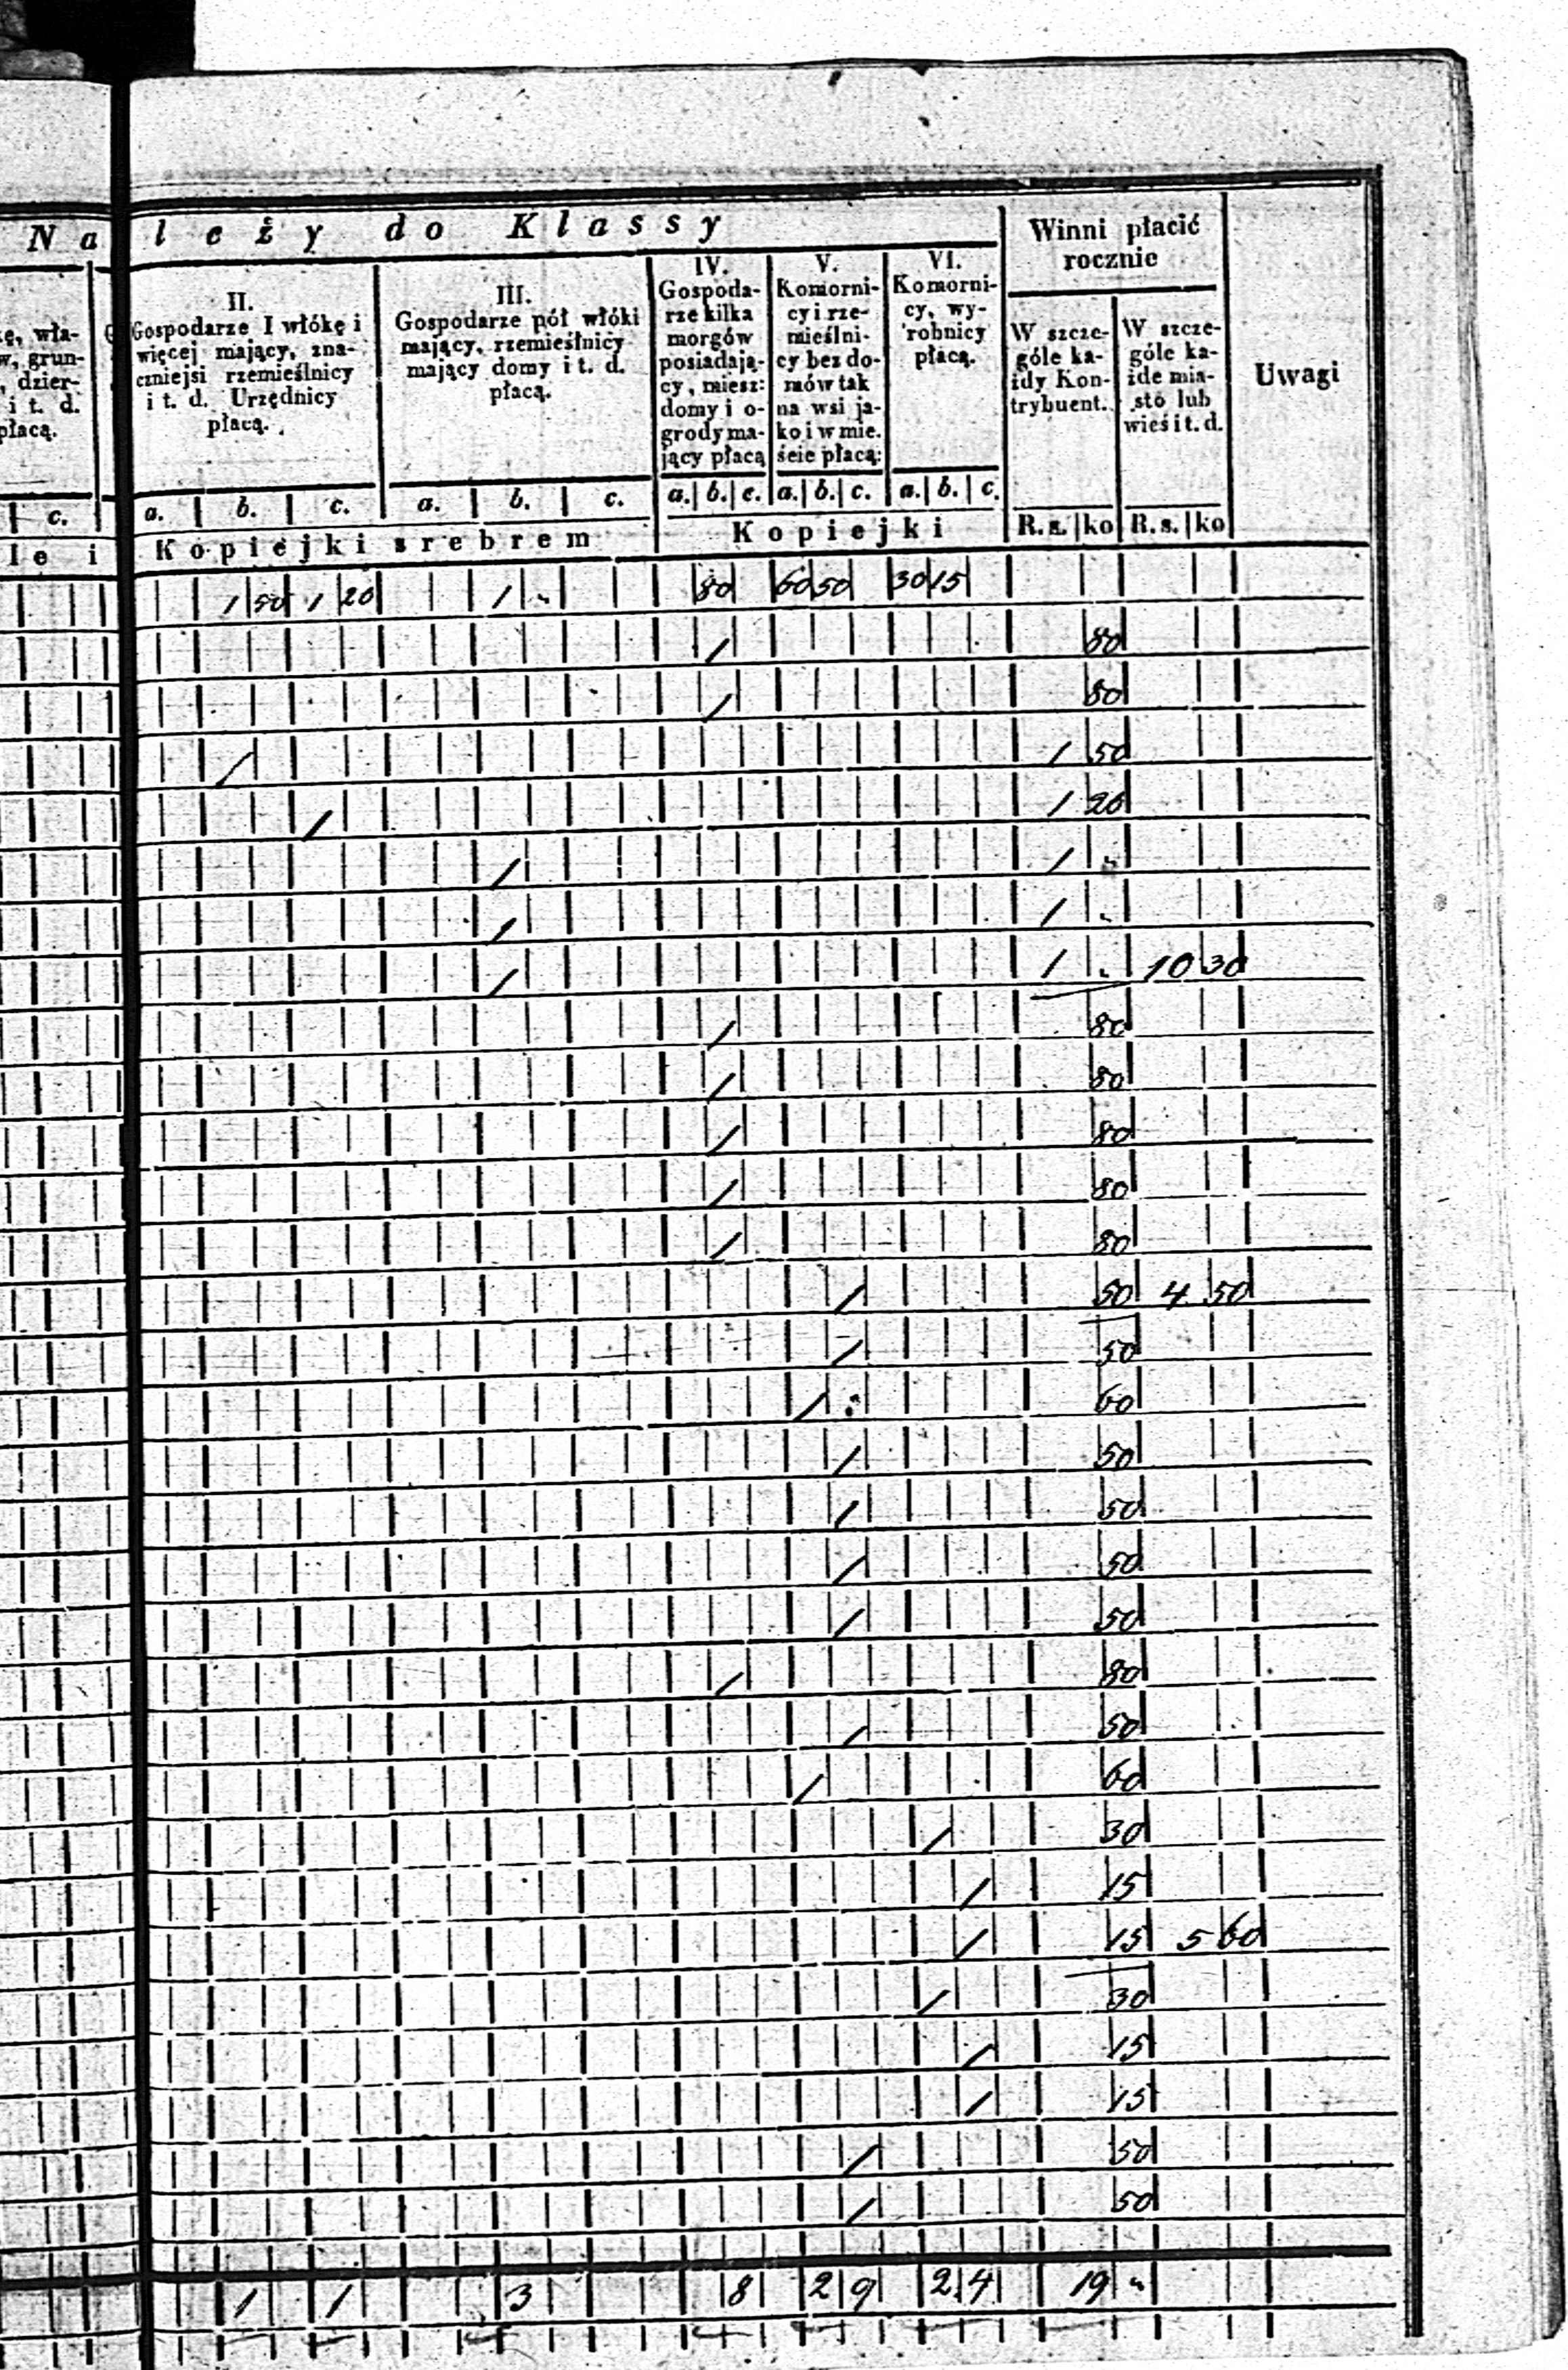 Należy do Klassy
Winni płacić
rocznie
ę, wła-
w, grun-
, dzier-
i t. d.
płacą.
II.
Gospodarze I włókę i
więcej mający, zna-
czniejsi rzemieślnicy
i t. d. Urzędnicy
płacą.
III.
Gospodarze pół włóki
mający, rzemieślnicy
mający domy i t. d.
płacą.
IV.
Gospoda-
rze kilka
morgów
posiadają-
cy, miesz:
domy i o-
grody ma-
jący płacą
V.
Komorni-
cy i rze-
mieślni-
cy bez do-
mów tak
na wsi ja-
ko i w mie.
ście płacą:
VI.
Komorni-
cy, wy-
robnicy
płacą.
W szcze-
góle ka-
żdy Kon-
trybuent.
W szcze-
góle ka-
żde mia-
sto lub
wieś i t. d.
Uwagi
c. a. b. c. a. b. c. a. b. c. a. b. c. a. b. c.
le i Kopiejki srebrem Kopiejki R.s. ko R.s. ko
1 50 1 20 1 " 80 60 50 30 15
/ 80
/ 80
/ 1 50
/ 1 20
/ 1 "
/ 1 "
/ 1 " 10 30
/ 80
/ 80
/ 80
/ 80
/ 80
/ 50 4 50
/ 50
/ 60
/ 50
/ 50
/ 50
/ 50
/ 80
/ 50
/ 60
/ 30
/ 15
/ 15 5 60
/ 30
/ 15
/ 15
/ 50
/ 50
1 1 3 8 2 9 2 4 19 "